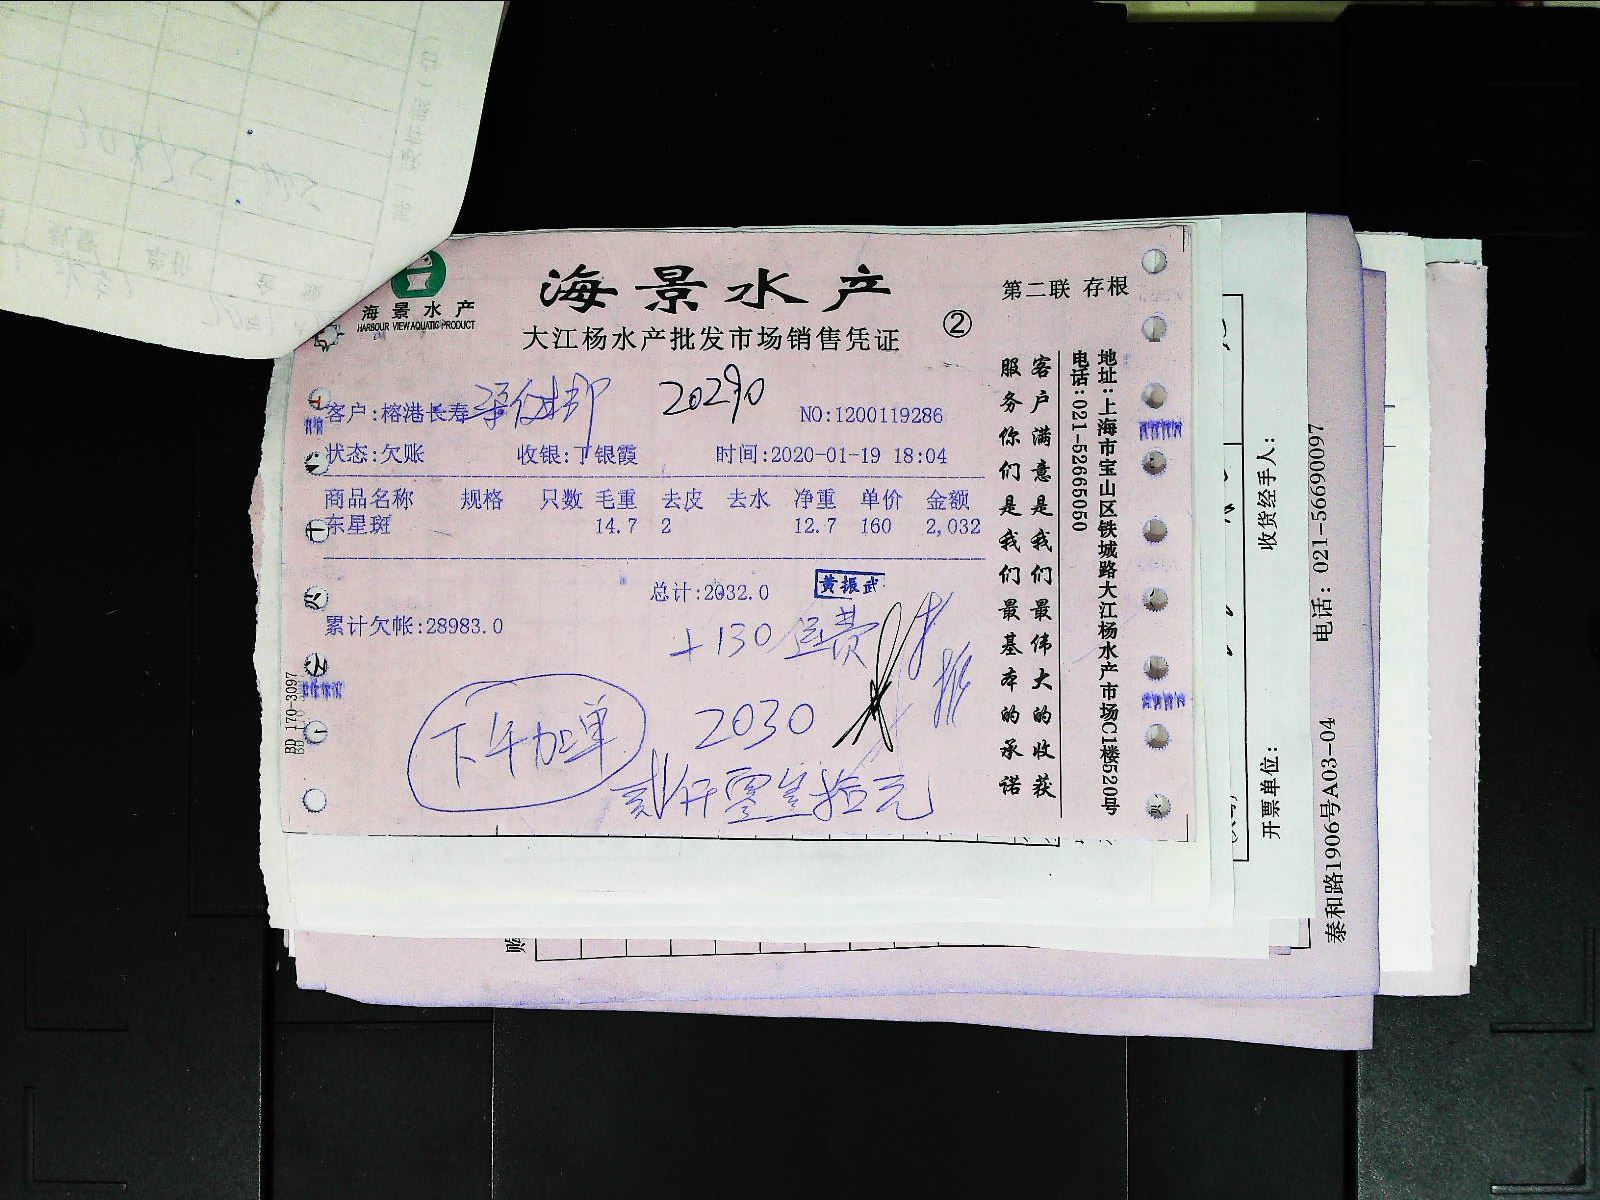 海景水产
HARBOUR VIEW AQUATIC PRODUCT
海景水产
大江杨水产批发市场销售凭证
②
第二联 存根
客户:榕港长寿
20290
NO:1200119286
状态:欠账 收银:丁银霞 时间:2020-01-19 18:04
商品名称 规格 只数 毛重 去皮 去水 净重 单价 金额
东星斑 14.7 2 12.7 160 2,032
总计:2032.0
黄振武
累计欠帐:28983.0
+130 运费
2030
下午加单
贰仟零叁拾元
客户满意是我们最伟大的收获
服务你们是我们最基本的承诺
地址:上海市宝山区铁城路大江杨水产市场C1楼520号
电话:021-52665050
BD 170-3097
收货经手人:
开票单位:
电话: 021-56690097
泰和路1906号A03-04